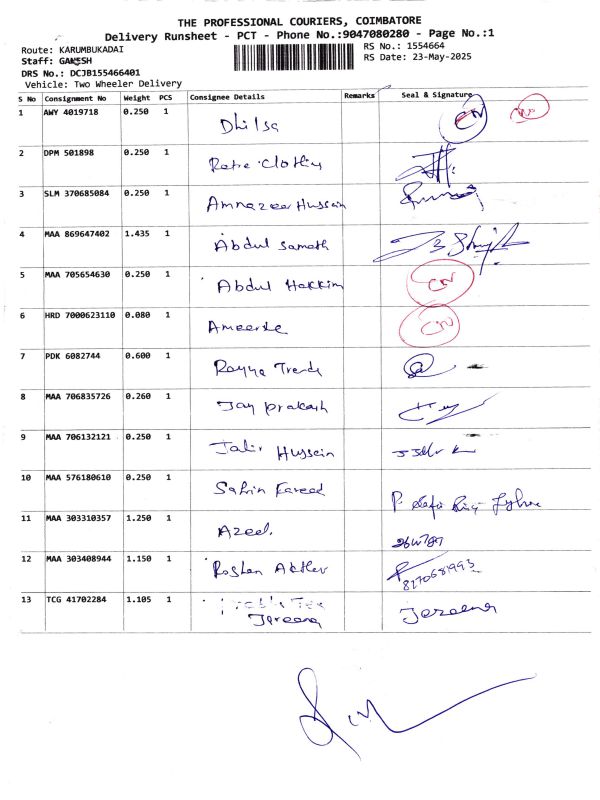 THE PROFESSIONAL COURIERS, COIMBATORE
Delivery Runsheet - PCT - Phone No.:9047080280 - Page No.:1
Route: KARUMBUKADAI
RS No.: 1554664
Staff: GANESH
RS Date: 23-May-2025
DRS No.: DCJB155466401
Vehicle: Two Wheeler Delivery
S No Consignment No Weight PCS Consignee Details Remarks Seal & Signature
1 AWY 4019718 0.250 1 Dhilsa CN CN
2 DPM 501898 0.250 1
3 SLM 370685084 0.250 1 Amnazeer Hussain
4 MAA 869647402 1.435 1 Abdul Samath
5 MAA 705654630 0.250 1 Abdul Hakkim CN
6 HRD 7000623110 0.080 1 CN
7 PDK 6082744 0.600 1 Rayya Trends
8 MAA 706835726 0.260 1 Jay prakash
9 MAA 706132121 0.250 1 Jakir Hussein
10 MAA 576180610 0.250 1 Sabrin Fareed
11 MAA 303310357 1.250 1 Azeel.
12 MAA 303408944 1.150 1 Roshan Akther 8270681993
13 TCG 41702284 1.105 1 Jareena Jareena